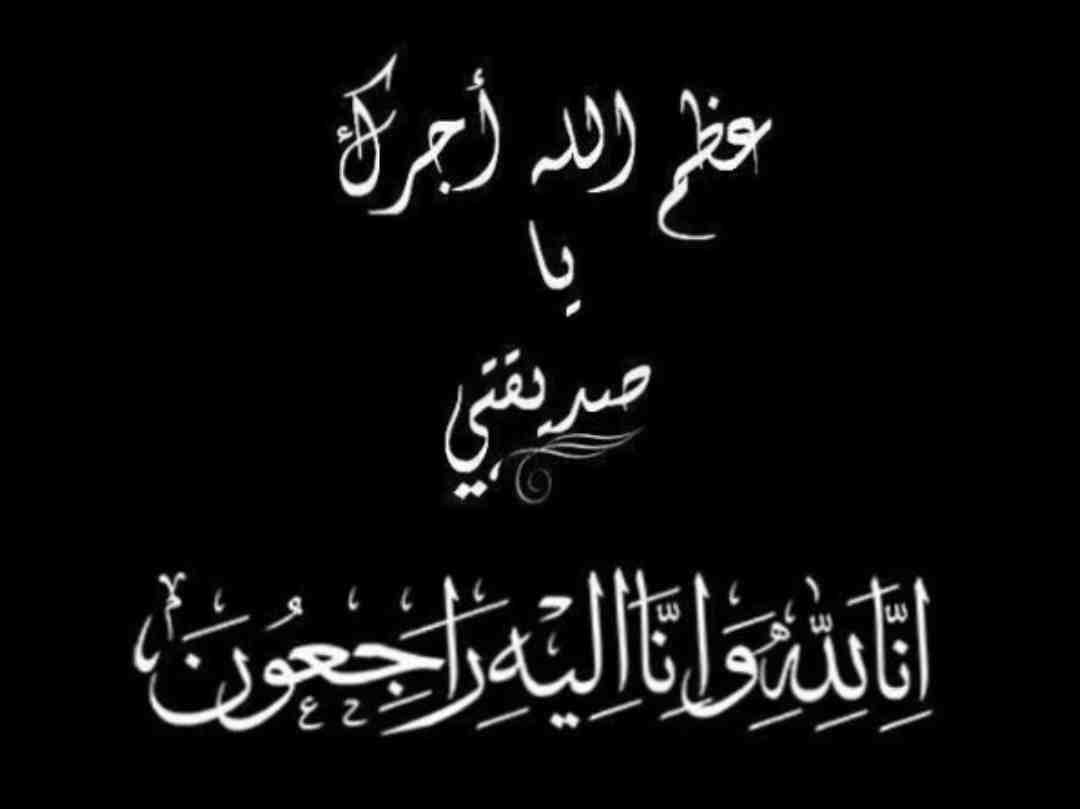 عظم الله أجرك
يا
صديقتي
اِنَّا لِلّٰهِ وَاِنَّا اِلَيْهِ رَاجِعُونَ